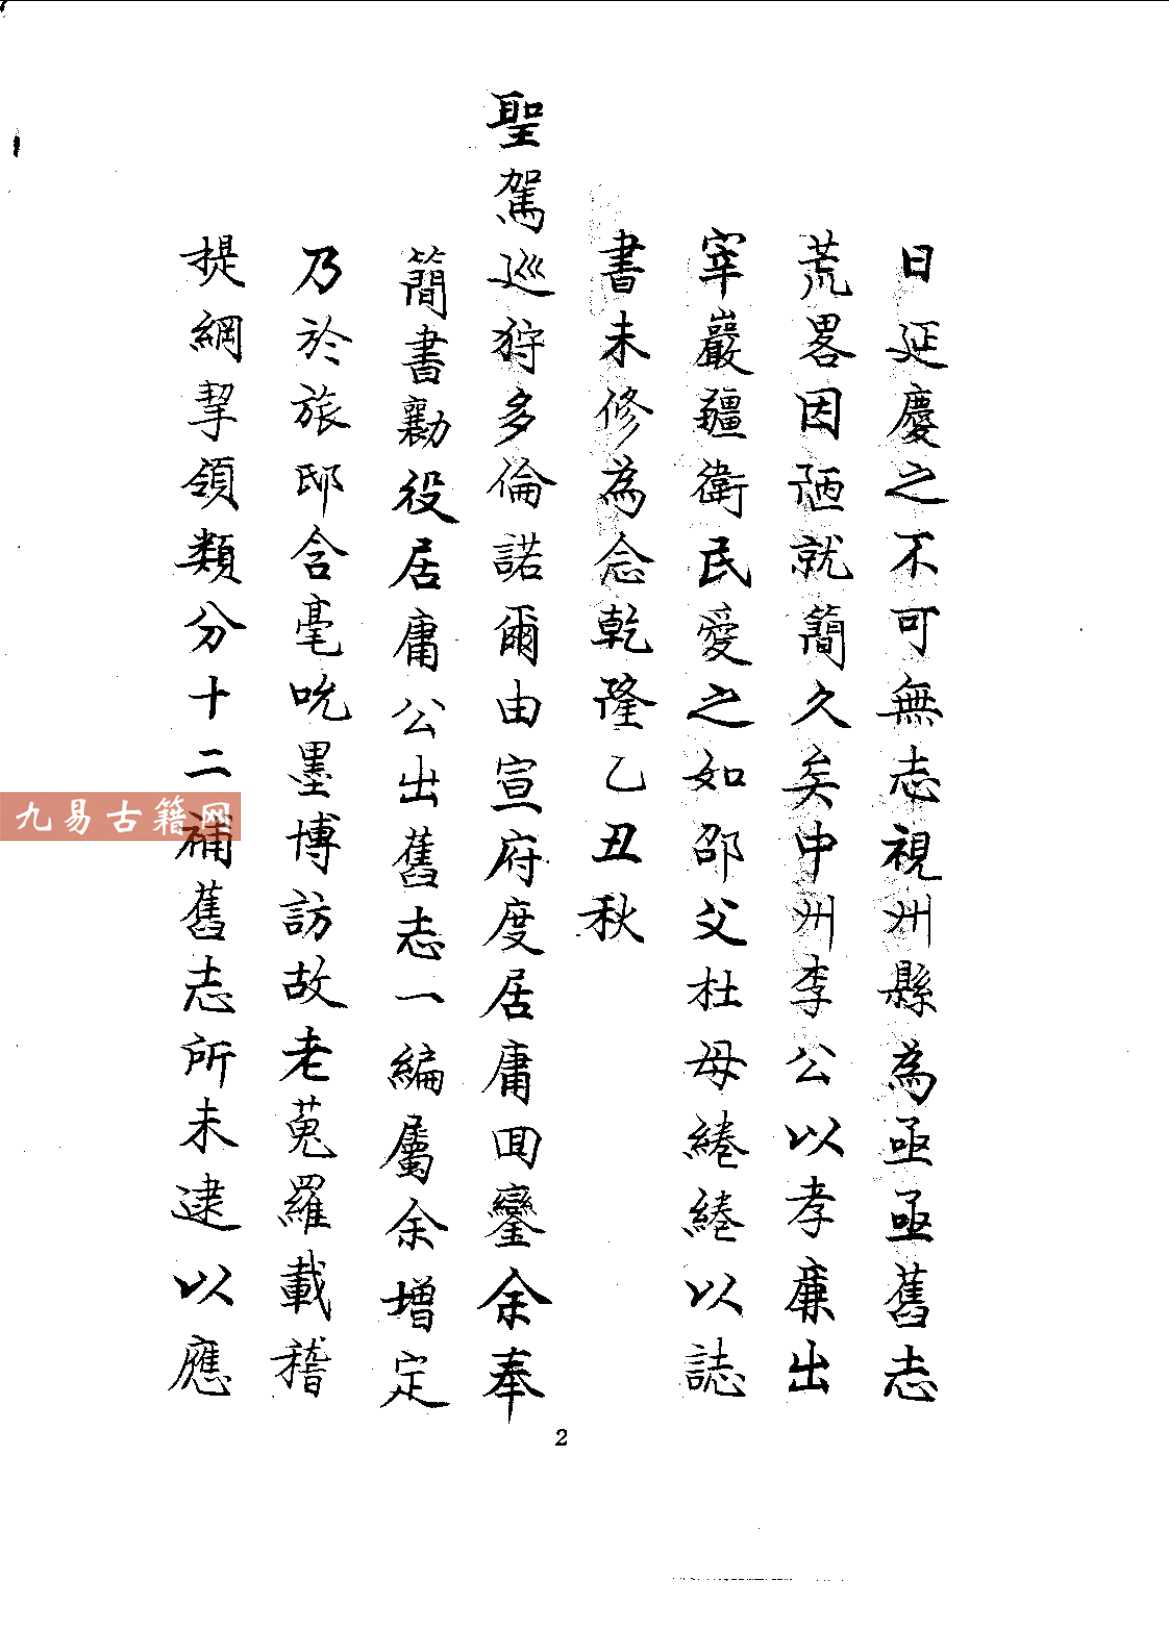 日延慶之不可無志視州縣為亟亟舊志
荒畧因陋就簡久矣中州李公以孝廉出
宰巖疆衛民愛之如邵父杜母綣綣以誌
書未修為念乾隆乙丑秋
聖駕巡狩多倫諾爾由宣府度居庸回鑾余奉
簡書勷役居庸公出舊志一編屬余增定
乃於旅邸含毫吮墨博訪故老蒐羅載稽
提綱挈領類分十二補舊志所未逮以應
九易古籍网
2